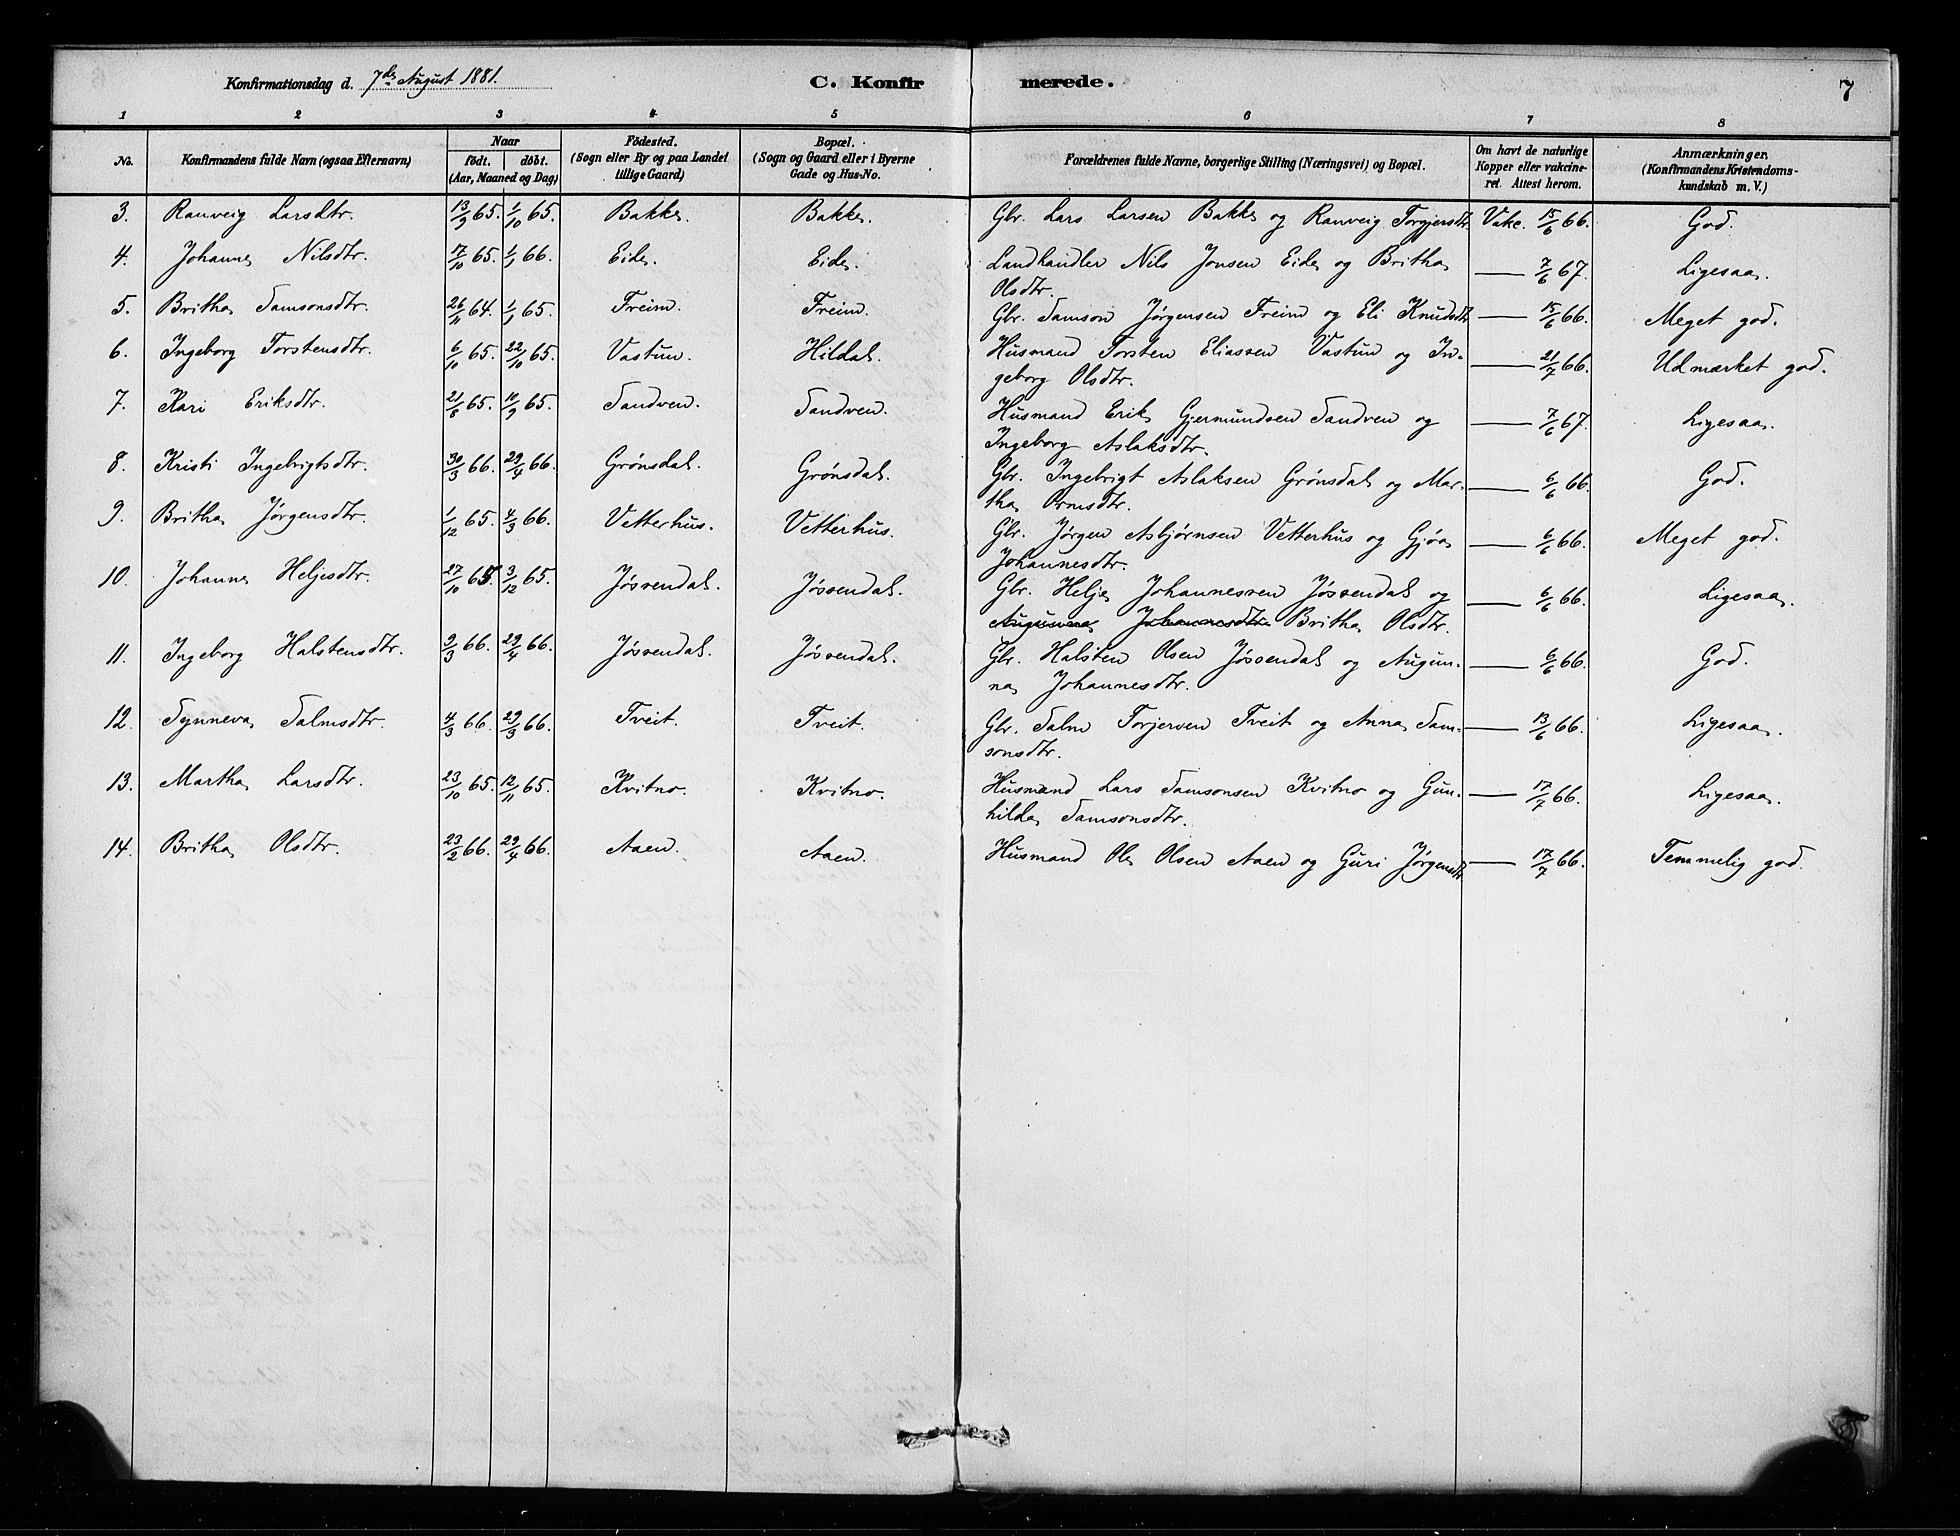 Konfirmationsdag d. 7de August 1881. C. Konfirmerede. 7
1 2 3 4 5 6 7 8
No. Konfirmandens fulde Navn (ogsaa Efternavn) Naar födt. döbt. (Aar, Maaned og Dag) Födested. (Sogn eller By og paa Landet tillige Gaard) Bopæl. (Sogn og Gaard eller i Byerne Gade og Hus-No. Forældrenes fulde Navne, borgerlige Stilling (Næringsvei) og Bopæl. Om havt de naturlige Kopper eller vakcineret. Attest herom. Anmærkninger. (Konfirmandens Kristendomskundskab m. V.)
3. Ranveig Larsdtr. 13/9 65. 1/10 65. Bakke. Bakke. Gbr. Lars Larsen Bakke og Ranveig Torgjersdtr. Vakc. 15/6 66. God.
4. Johanne Nilsdtr. 17/10 65. 1/1 66. Eide. Eide. Landhandler Nils Jonsen Eide og Britha — 7/6 67. Ligesaa.
Olsdtr.
5. Britha Samsonsdtr. 26/11 64. 1/1 65. Freim. Freim. Gbr. Samson Jørgensen Freim og Eli Knudsdtr — 15/6 66. Meget god.
6. Ingeborg Torstensdtr. 6/10 65. 22/10 65. Vastun. Hildal. Husmand Torsten Eliassen Vastun og In- — 21/7 66. Udmærket god.
geborg Olsdtr.
7. Kari Eriksdtr. 21/6 65. 10/9 65. Sandven. Sandven. Husmand Erik Gjermundsen Sandven og — 7/6 67. Ligesaa.
Ingeborg Aslaksdtr.
8. Kristi Ingebrigtsdtr. 30/3 66. 29/4 66. Grønsdal. Grønsdal. Gbr. Ingebrigt Aslaksen Grønsdal og Mar- — 6/6 66. God.
tha Ormsdtr.
9. Britha Jørgensdtr. 1/12 65. 4/3 66. Vetterhus. Vetterhus. Gbr. Jørgen Asbjørnsen Vetterhus og Gjøa — 6/6 66. Meget god.
Johannesdtr.
10. Johanne Heljesdtr. 27/10 65. 3/12 65. Jøssendal. Jøssendal. Gbr. Helje Johannessen Jøssendal og — 6/6 66. Ligesaa.
Augunna Johannesdtr. Britha Olsdtr.
11. Ingeborg Halstensdtr. 9/3 66. 29/4 66. Jøssendal. Jøssendal. Gbr. Halsten Olsen Jøssendal og Augun- — 6/6 66. God.
na Johannesdtr.
12. Synneva Salmsdtr. 4/3 66. 29/3 66. Tveit. Tveit. Gbr. Salm Torjersen Tveit og Anna Sam- — 13/6 66. Ligesaa.
sonsdtr.
13. Martha Larsdtr. 23/10 65. 12/11 65. Kvitno. Kvitno. Husmand Lars Samsonsen Kvitno og Gun- — 17/7 66. Ligesaa.
hilda Samsonsdtr.
14. Britha Olsdtr. 23/2 66. 29/4 66. Aaen. Aaen. Husmand Ole Olsen Aaen og Guri Jørgensdtr — 17/7 66. Temmelig god.